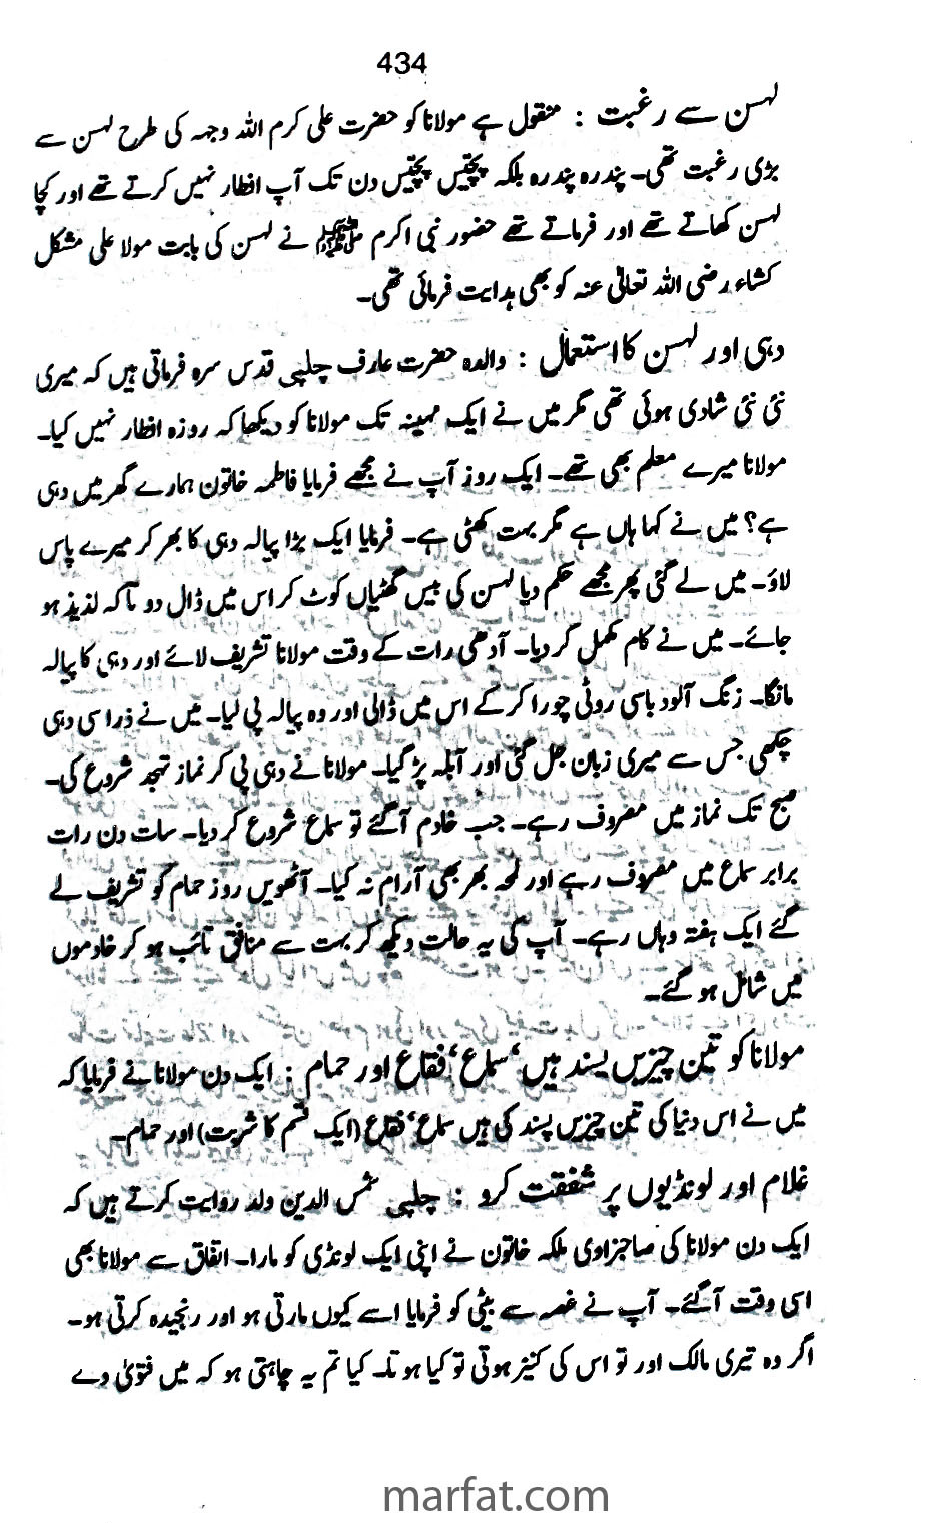 434
لہسن سے رغبت : منقول ہے مولانا کو حضرت علی کرم اللہ وجہہ کی طرح لہسن سے
بڑی رغبت تھی۔ پندرہ پندرہ بلکہ پچیس پچیس دن تک آپ افطار نہیں کرتے تھے اور کچا
لہسن کھاتے تھے اور فرماتے تھے حضور نبی اکرم ﷺ نے لہسن کی بابت مولا علی مشکل
کشاء رضی اللہ تعالی عنہ کو بھی ہدایت فرمائی تھی۔
دہی اور لہسن کا استعمال : والدہ حضرت عارف چلپی قدس سرہ فرماتی ہیں کہ میری
نئی نئی شادی ہوئی تھی مگر میں نے ایک مہینہ تک مولانا کو دیکھا کہ روزہ افطار نہیں کیا۔
مولانا میرے معلم بھی تھے۔ ایک روز آپ نے مجھے فرمایا فاطمہ خاتون ہمارے گھر میں دہی
ہے؟ میں نے کہا ہاں ہے مگر بہت کھٹی ہے۔ فرمایا ایک بڑا پیالہ دہی کا بھر کر میرے پاس
لاؤ۔ میں لے گئی پھر مجھے حکم دیا لہسن کی بیس گھٹیاں کوٹ کر اس میں ڈال دو تاکہ لذیذ ہو
جائے۔ میں نے کام مکمل کر دیا۔ آدھی رات کے وقت مولانا تشریف لائے اور دہی کا پیالہ
مانگا۔ زنگ آلود باسی روٹی چورا کر کے اس میں ڈالی اور وہ پیالہ پی لیا۔ میں نے ذرا سی دہی
چکھی جس سے میری زبان جل گئی اور آبلہ پڑ گیا۔ مولانا نے دہی پی کر نماز تہجد شروع کی۔
صبح تک نماز میں مصروف رہے۔ جب خادم آگئے تو سماع شروع کر دیا۔ سات دن رات
برابر سماع میں مصروف رہے اور لمحہ بھر بھی آرام نہ کیا۔ آٹھویں روز حمام کو تشریف لے
گئے ایک ہفتہ وہاں رہے۔ آپ کی یہ حالت دیکھ کر بہت سے منافق تائب ہو کر خادموں
میں شامل ہو گئے۔
مولانا کو تین چیزیں پسند ہیں ‘ سماع‘ فقاع اور حمام : ایک دن مولانا نے فرمایا کہ
میں نے اس دنیا کی تین چیزیں پسند کی ہیں سماع‘ فقاع (ایک قسم کا شربت) اور حمام۔
غلام اور لونڈیوں پر شفقت کرو : چلپی شمس الدین ولد روایت کرتے ہیں کہ
ایک دن مولانا کی صاحبزادی ملکہ خاتون نے اپنی ایک لونڈی کو مارا۔ اتفاق سے مولانا بھی
اسی وقت آگئے۔ آپ نے غصہ سے بیٹی کو فرمایا اسے کیوں مارتی ہو اور رنجیدہ کرتی ہو۔
اگر وہ تیری مالک اور تو اس کی کنیز ہوتی تو کیا ہوتا۔ کیا تم یہ چاہتی ہو کہ میں فتویٰ دے
marfat.com